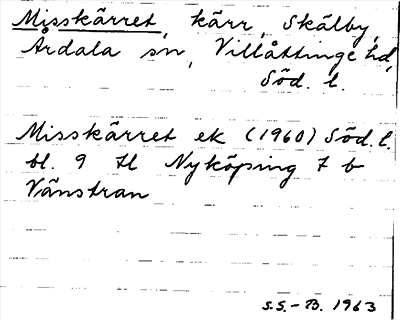 Misskärret, kärr, Skälby,
Årdala sn, Villåttinge hd,
Söd. l.
Misskärret ek (1960) Söd. l.
bl. 9 H Nyköping 7 b
Vänstran
S.S.-B. 1963